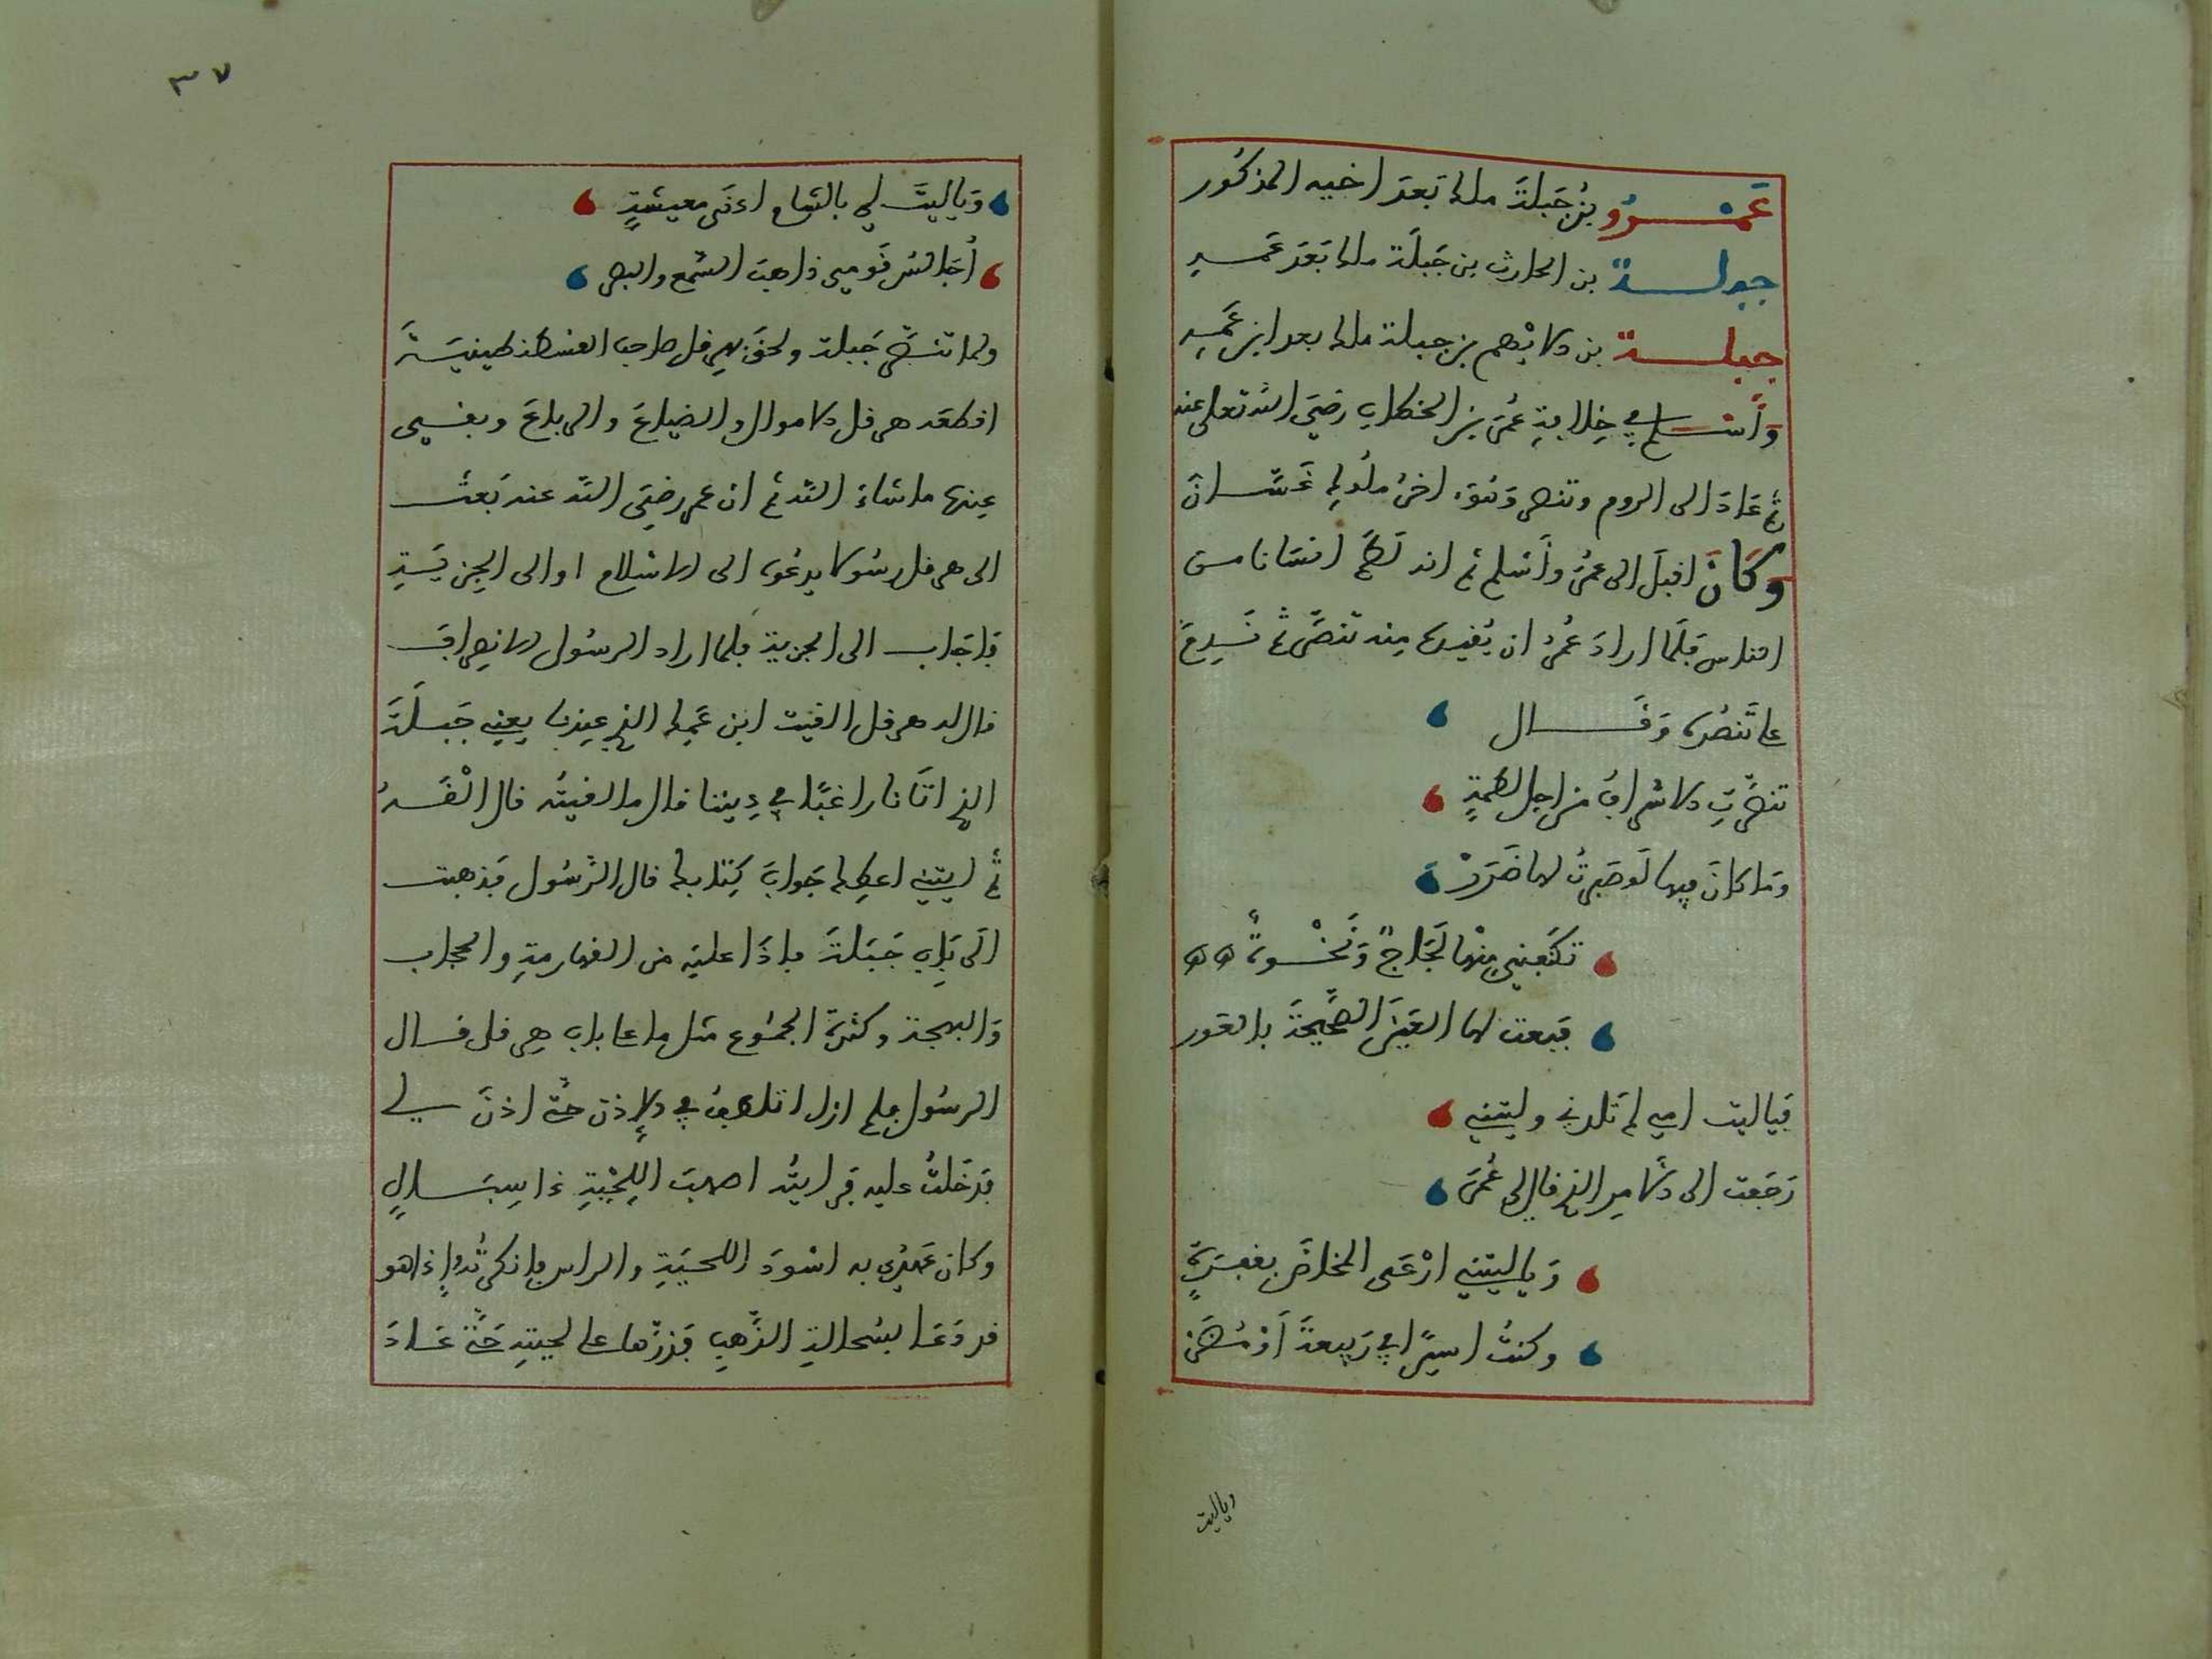 عَمْرُو بْنُ جَبلَةَ ملك بَعدَ اخيه المذكور
جبلة بن الحارث بن جَبلَة ملك بَعدَ عَمه
جبلة بن الايْهم بن جبلة ملك بعد ابن عَمه
وَأسلم في خِلافةِ عُمَر بن الخطاب رَضيَ الله تعلى عنه
ثم عَادَ الى الروم وتنصر وَهُوَ اخرُ ملُوك غَسَّان
وكَانَ اقبلَ الى عمرَ وأَسْلم ثم انه لَطَمَ انسَانا من
الناس فلَمّا ارادَ عُمرُ ان يُقيدهُ منه تنصَّر ثم نَدِمَ
على تَنصُرِهِ وَقَال
تنصَّرتِ الاشرافُ من اجل لطمةٍ
وَما كانَ فيها لَو صَبرتُ لها ضَرَرْ
تكنّفنِي مِنْها لَجَاجٌ وَنَخْوةٌ
فبعت لها العَينَ الصَّحِيحَةَ بالعَور
فَياليت امي لم تَلدني وليتني
رَجَعت الى الامرِ الذي قال لي عُمَر
وَياليتني ارْعَى المخاضَ بقفرَةٍ
وكنتُ اسيرًا في رَبيعةَ أَوْ مُضَر
وياليت
٣٧
وَياليتَ لي بالشام ادنَى معيشةٍ
أُجَالسُ قَومي ذاهبَ السّمع والبصر
ولما تنصَّر جَبلة ولحقَ بهِرقل صاحب القسطنطينيَةَ
اقطعَه هرقل الاموال والضياعَ والرباعَ وبقي
عِندها ما شاءَ الله ثم ان عمر رضيَ الله عنه بَعث
الى هرقل رسُولا يدعُوه الى الاسْلام او الى الجزيَةِ
فاجَاب الى الجزية فلما اراد الرسُول الانصِرافَ
قال له هرقل القيت ابن عَمِك الذي عِندنا يعني جَبلَةَ
الذي اتَانا راغبًا في دِيننا قال ما لقيتُه قال الْقَهُ
ثم ايتيني اعطِك جَوابَ كِتابك قال الرَّسُول فذهبت
الَى بَابِ جَبَلةَ فاذَا عليَه من القهارمةِ والحجاب
وَالبهجة وكثرةِ الجمُوع مثل ما على باب هِرقل قال
الرسُول فلم ازل اتلطفُ في الإذن حتّى اذنَ لي
فدَخَلتُ عليه فرايتُه اصهبَ اللِّحْيةِ ذا سِبَالٍ
وكان عَهدِي به اسْودَ اللحيَةِ والراس فانكرتُه وإذا هو
قد دَعَا بسُحالةِ الذَّهبِ فذرّها على لحيتِه حَتّى عَادَ